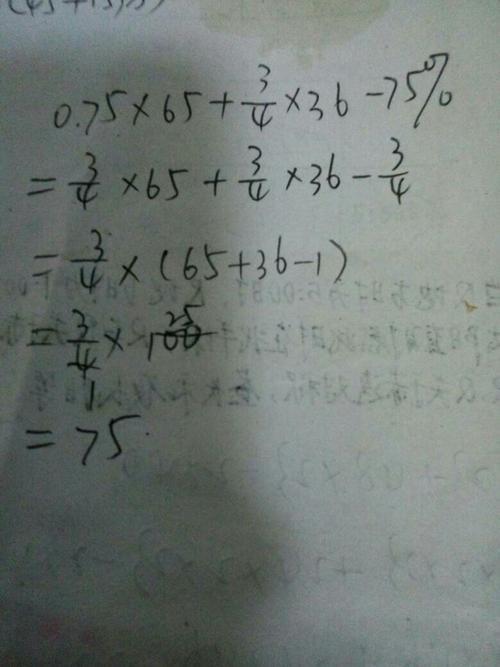 0.75×65+3/4×36-75%
=3/4×65+3/4×36-3/4
=3/4×(65+36-1)
=3/4×100
25
1
=75